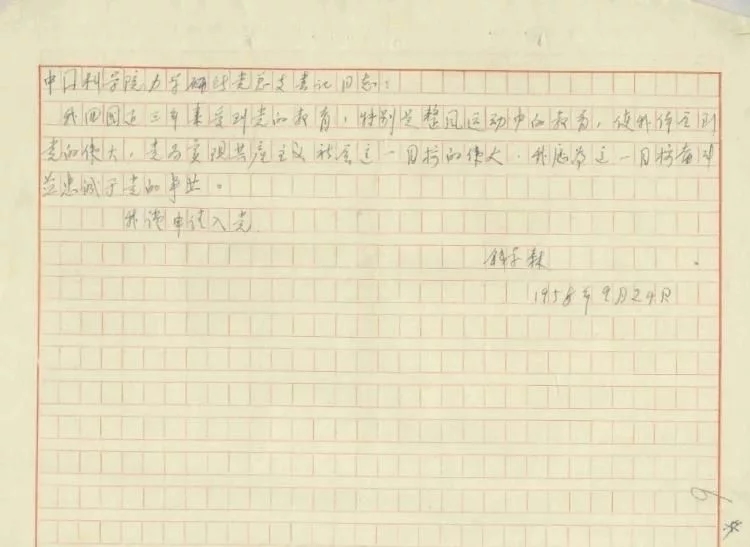 中国科学院力学研究所党总支书记同志：
我回国近三年来受到党的教育，特别是整风运动中的教育，使我体会到
党的伟大，党为实现共产主义社会这一目标的伟大．我愿为这一目标奋斗
并忠诚于党的事业。
我谨申请入党．
钱学森
1958年9月24日
9